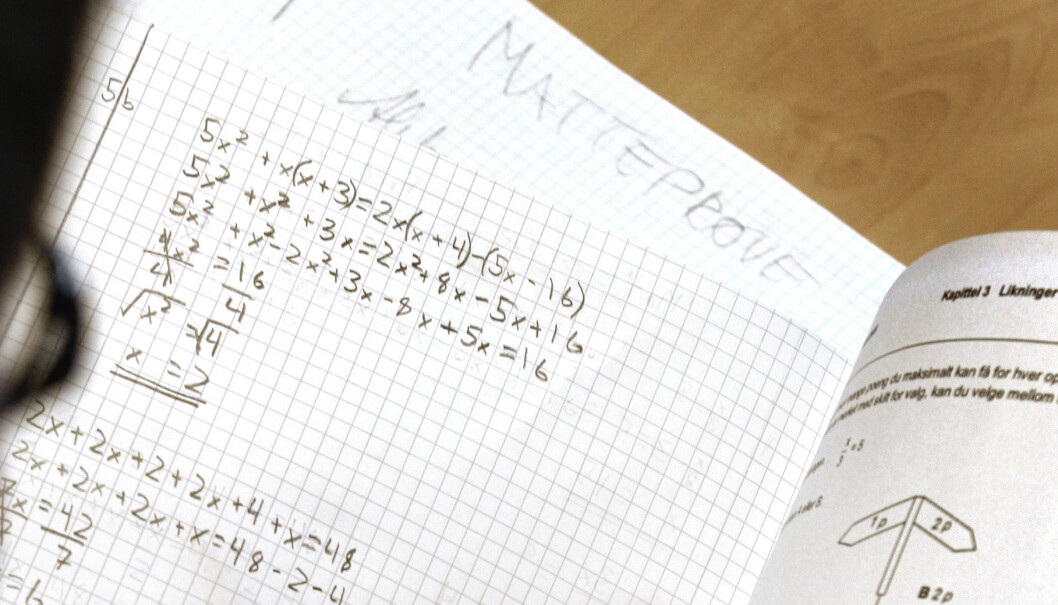 MATTEPRØVE
5b
5x² + x(x + 3) = 2x(x + 4) - (5x - 16)
5x² + x² + 3x = 2x² + 8x - 5x + 16
5x² + x² - 2x² + 3x - 8x + 5x = 16
4x²/4 = 16/4
√x² = √4
x = 2
2x + 2x + 2 + 2x + 4 + x = 48
2x + 2x + 2x + x = 48 - 2 - 4
7x = 42
7
= 6
Kapittel 3 Likninger
poeng du maksimalt kan få for hver
merket med skilt for valg, kan du velge mellom
x/3 = 5
eller B.
1p
2p
B 2p